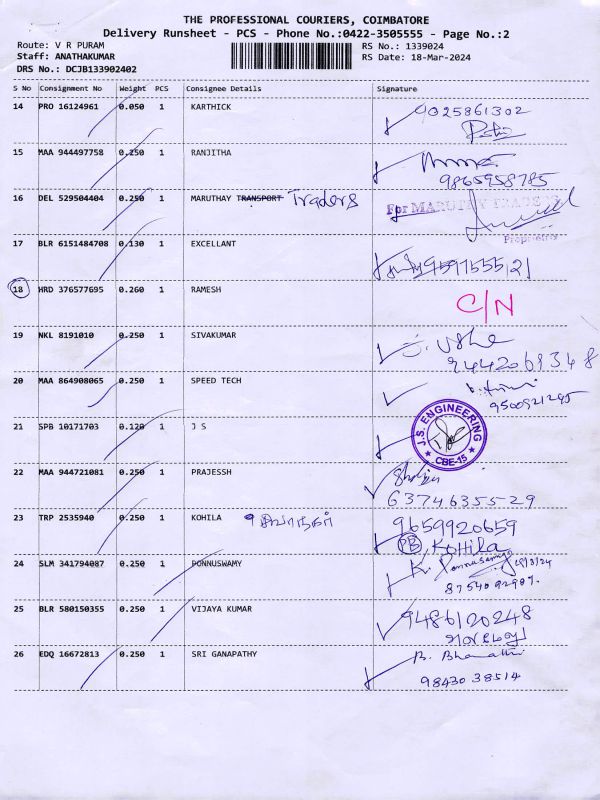 THE PROFESSIONAL COURIERS, COIMBATORE
Delivery Runsheet - PCS - Phone No.:0422-3505555 - Page No.:2
Route: V R PURAM
RS No.: 1339024
Staff: ANATHAKUMAR
RS Date: 18-Mar-2024
DRS No.: DCJB133902402
S No Consignment No Weight PCS Consignee Details Signature
14 PRO 16124961 0.050 1 KARTHICK 9025861302
15 MAA 944497758 0.250 1 RANJITHA
9865958785
16 DEL 529504404 0.250 1 MARUTHAY TRANSPORT Traders
Proprietry
17 BLR 6151484708 0.130 1 EXCELLANT 9597555121
18 HRD 376577695 0.260 1 RAMESH C/N
19 NKL 8191010 0.250 1 SIVAKUMAR
9442069348
20 MAA 864908065 0.250 1 SPEED TECH
9500921295
21 SPB 10171703 0.120 1 J S J.S. ENGINEERING CBE-15
22 MAA 944721081 0.250 1 PRAJESSH
6374635529
23 TRP 2535940 0.250 1 KOHILA 9659920659
PB Kohila
24 SLM 341794087 0.250 1 PONNUSWAMY K. Ponnusamy 18/3/24
8754092907.
25 BLR 580150355 0.250 1 VIJAYA KUMAR 9486120248
26 EDQ 16672813 0.250 1 SRI GANAPATHY B. Bharathi
9843038514